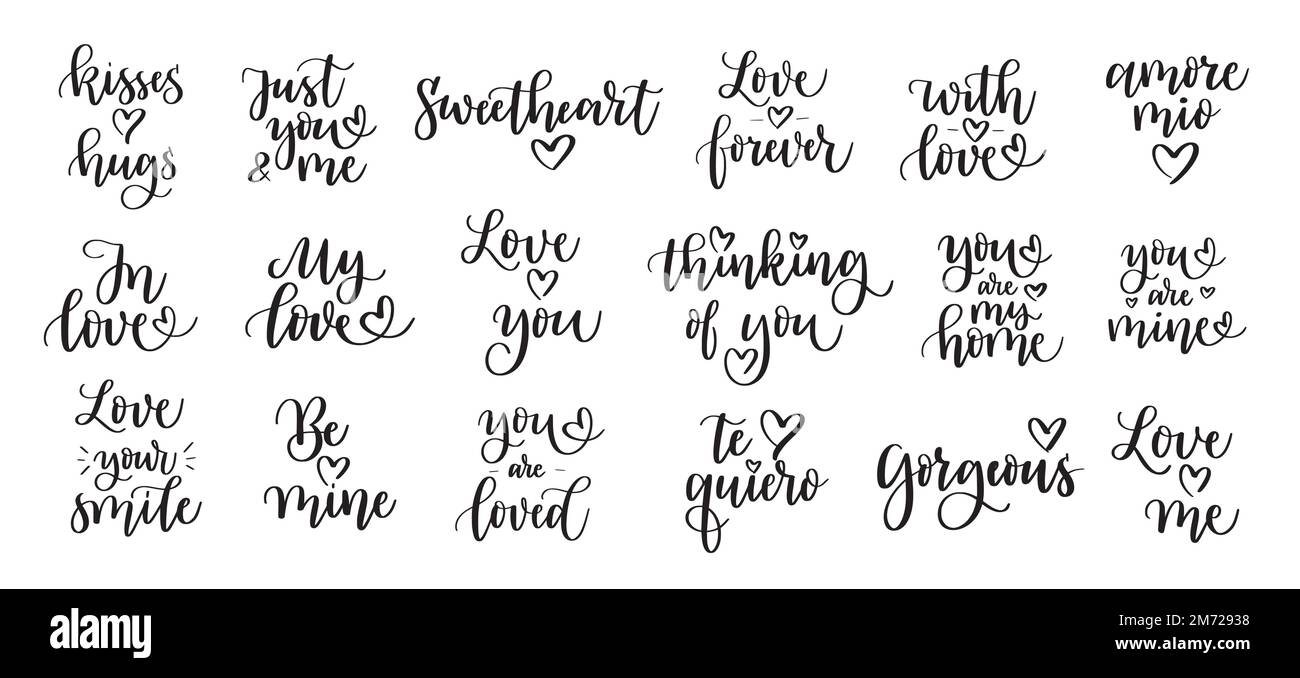 kisses
hugs
Just
you
& me
Sweetheart
Love
forever
with
love
amore
mio
In
love
My
love
Love
you
thinking
of you
you
are
my
home
you
are
mine
Love
your
smile
Be
mine
you
are
loved
te
quiero
Gorgeous
Love
me
alamy
Image ID: 2M72938
www.alamy.com